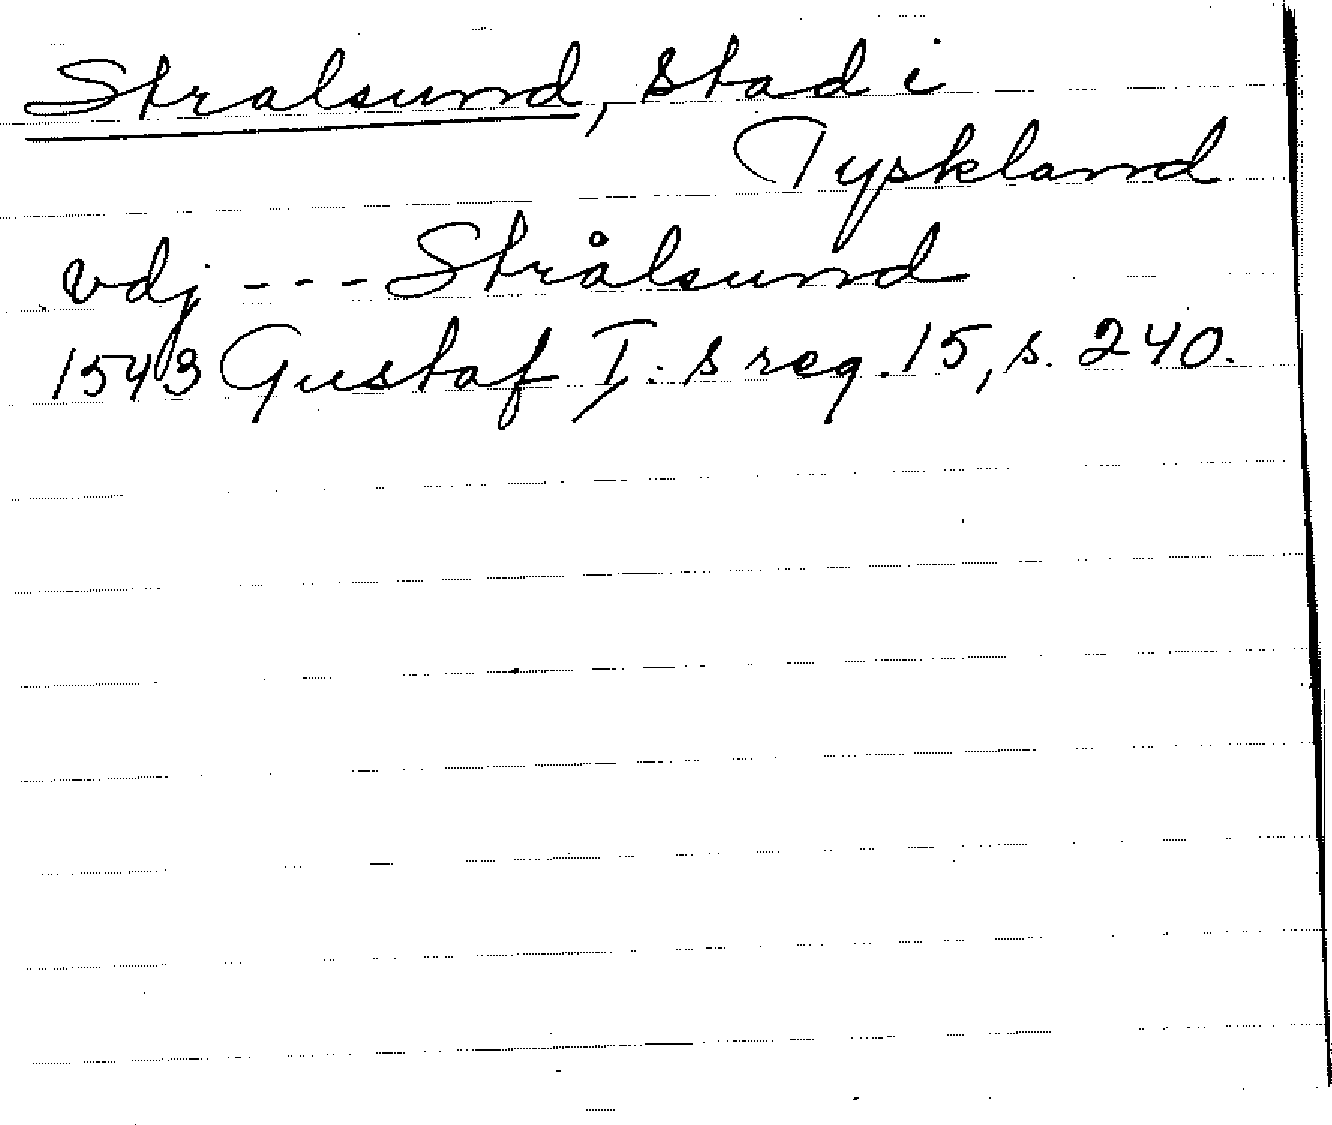 Stralsund, stad i
Tyskland
vdj --- Strålsund
1543 Gustaf I:s reg. 15, s. 240.